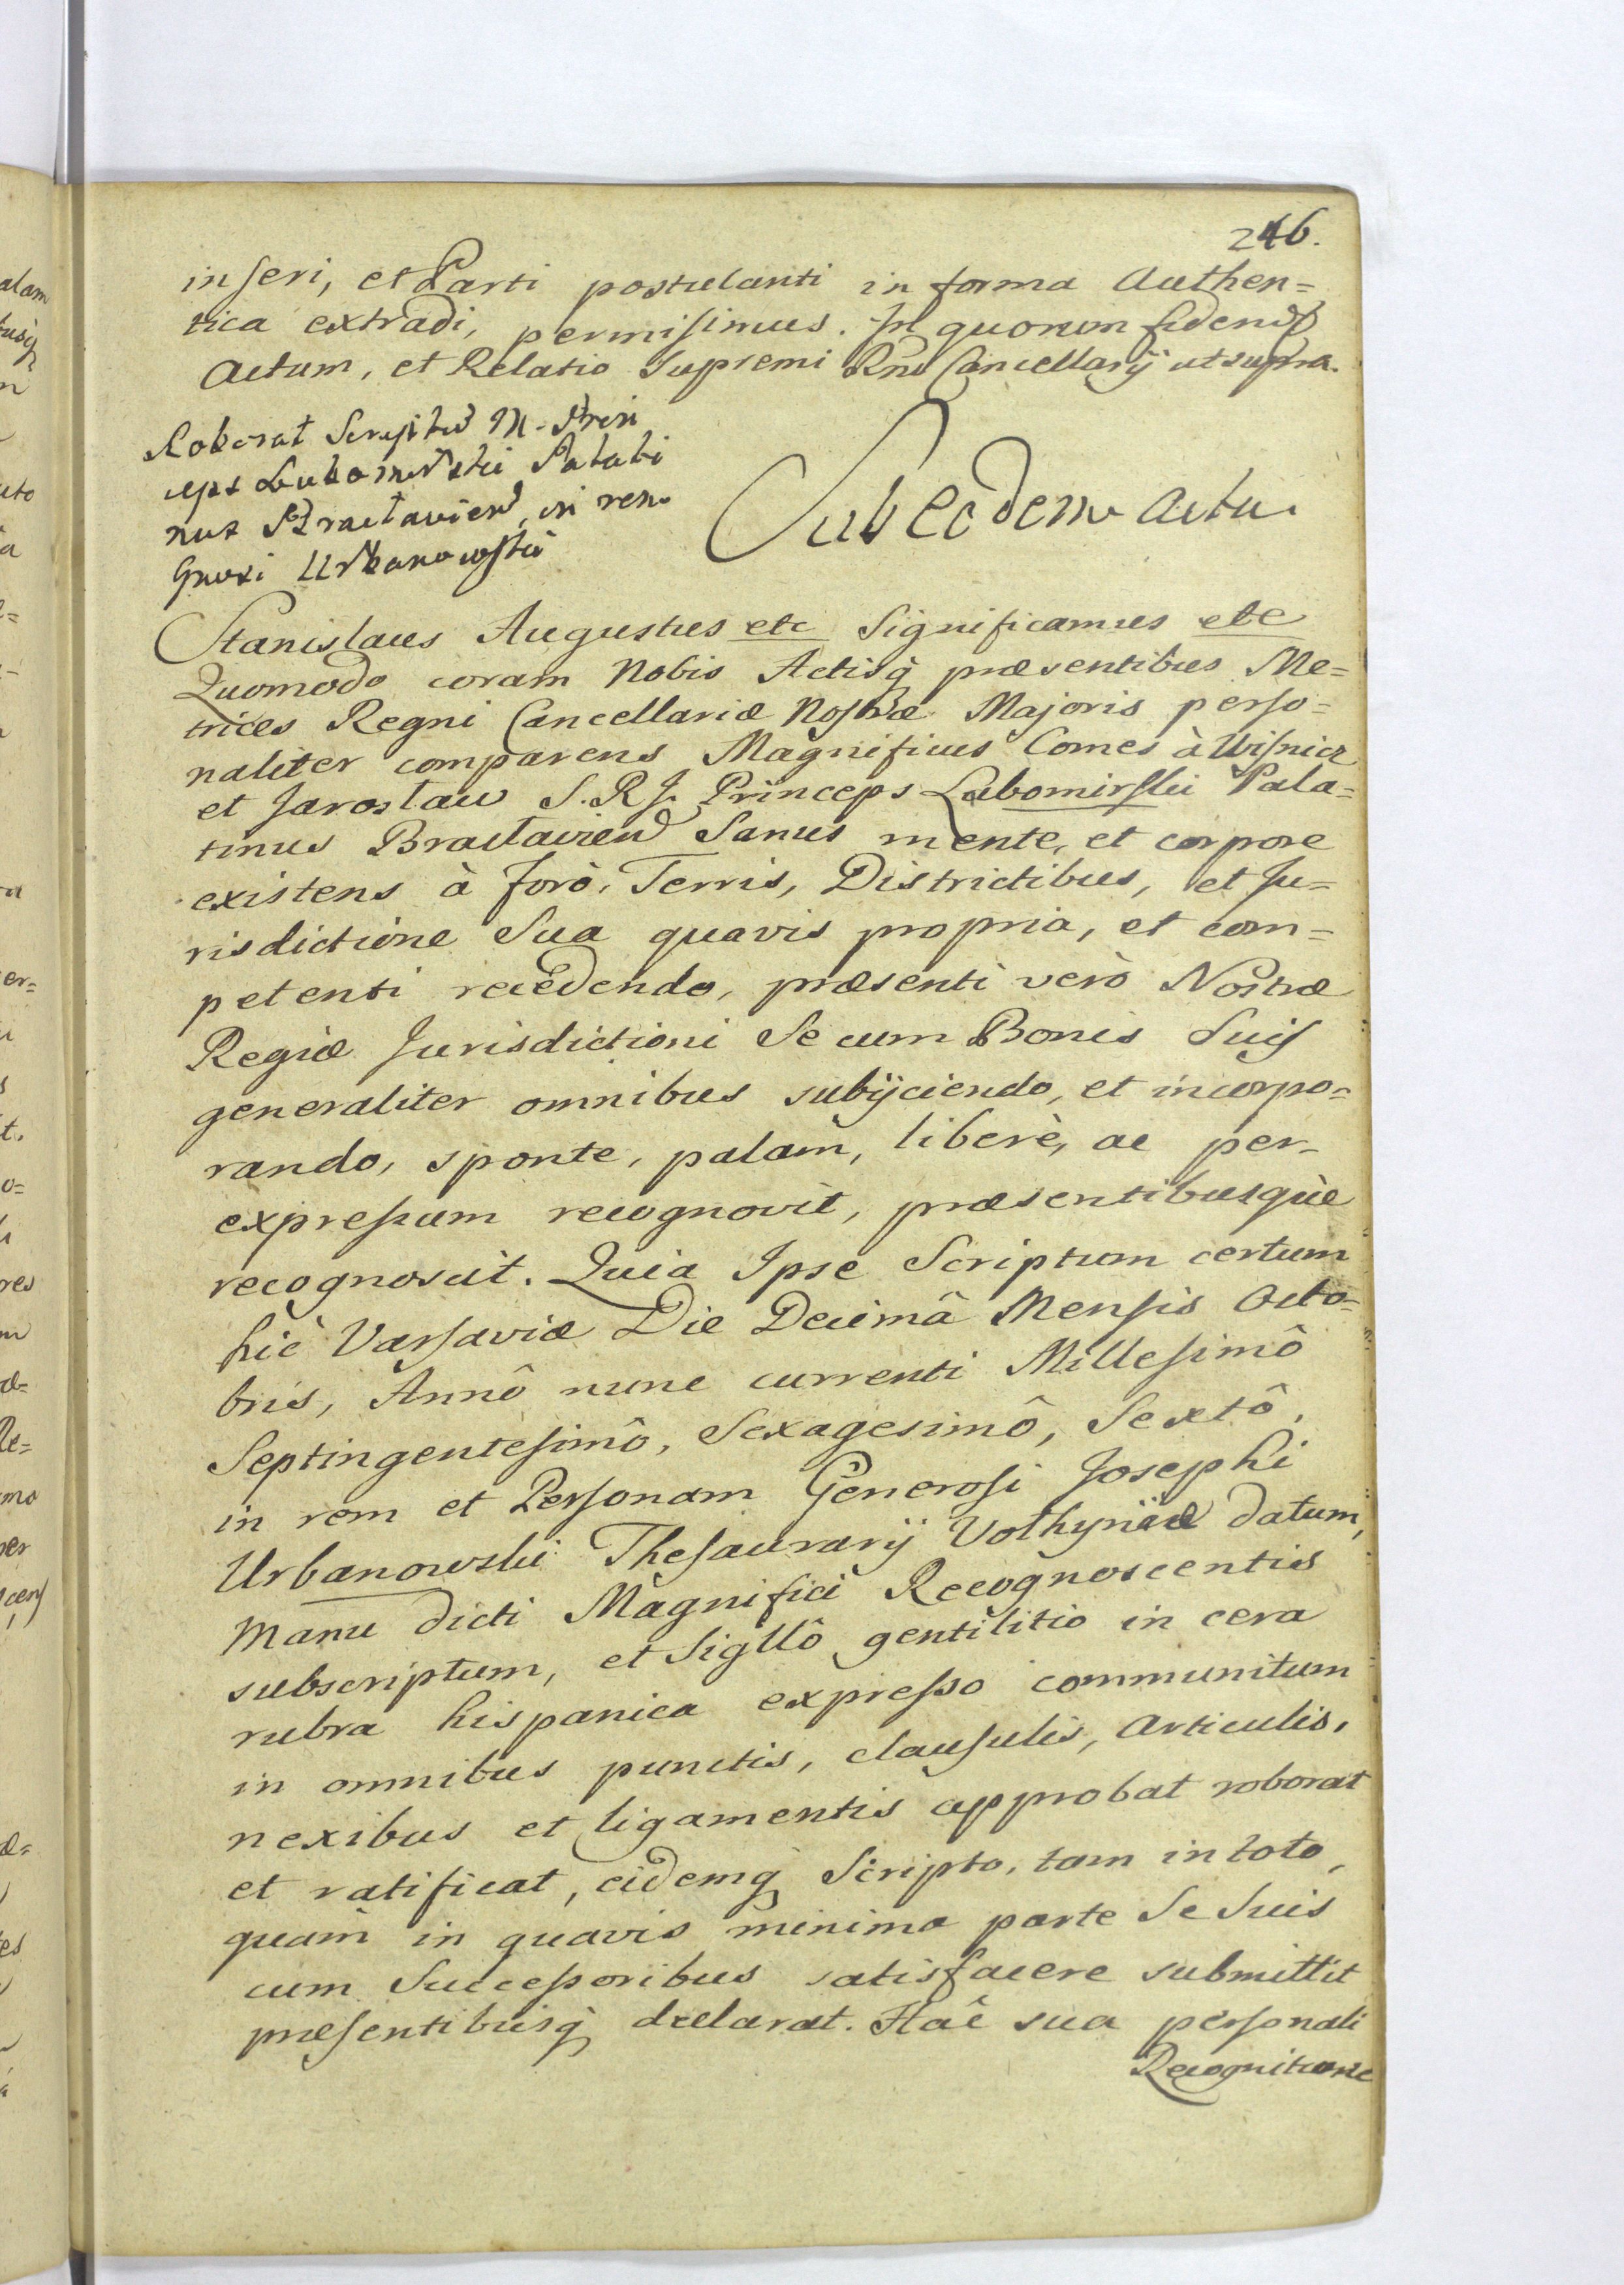 246.
inseri, et Parti postulanti in forma Authen=
tica extradi, permisimus. In quorum fidem
Actum, et Relatio Supremi Rni Cancellarij ut supra.
Roborat Scriptum M. Prin
ceps Lubomirski Palati
nus Braclavien in rem
Gnosi Urbanowski
Sub eodem Actu.
Stanislaus Augustus etc Significamus etc
Quomodo coram Nobis Actisq́ præsentibus Me=
trices Regni Cancellariæ Nostræ Majoris perso=
naliter comparens Magnificus Comes à Wisnicz
et Jaroslaw S.R.J. Princeps Lubomirski Pala=
tinus Braclavien Sanus mente, et corpore
existens à Forô, Terris, Districtibus, et Ju=
risdictione Sua quavis propria, et com=
petenti recedendo, præsenti verò Nostræ
Regiæ Jurisdictioni Se cum Bonis Suis
generaliter omnibus subijciendo, et incorpo=
rando, sponte, palam, liberè, ac per=
expressum recognovit, præsentibusque
recognoscit. Quia Ipse Scriptum certum
hic Varsaviæ Die Decimâ Mensis Octo=
bris, Annô nunc currenti Millesimô
Septingentesimô, Sexagesimô, Sextô,
in rem et Personam Generosi Josephi
Urbanowski Thesaurarij Volhyniæ datum,
Manu dicti Magnifici Recognoscentis
subscriptum, et Sigllô gentilitio in cera
rubra hispanica expresso communitum
in omnibus punctis, clausulis, Articulis,
nexibus et ligamentis approbat roborat
et ratificat, eidemq́ Scripto, tam in toto,
quam in quavis minima parte Se Suis
cum Successoribus satisfacere submittit
præsentibusq́ declarat. Hac sua personali
Recognitione